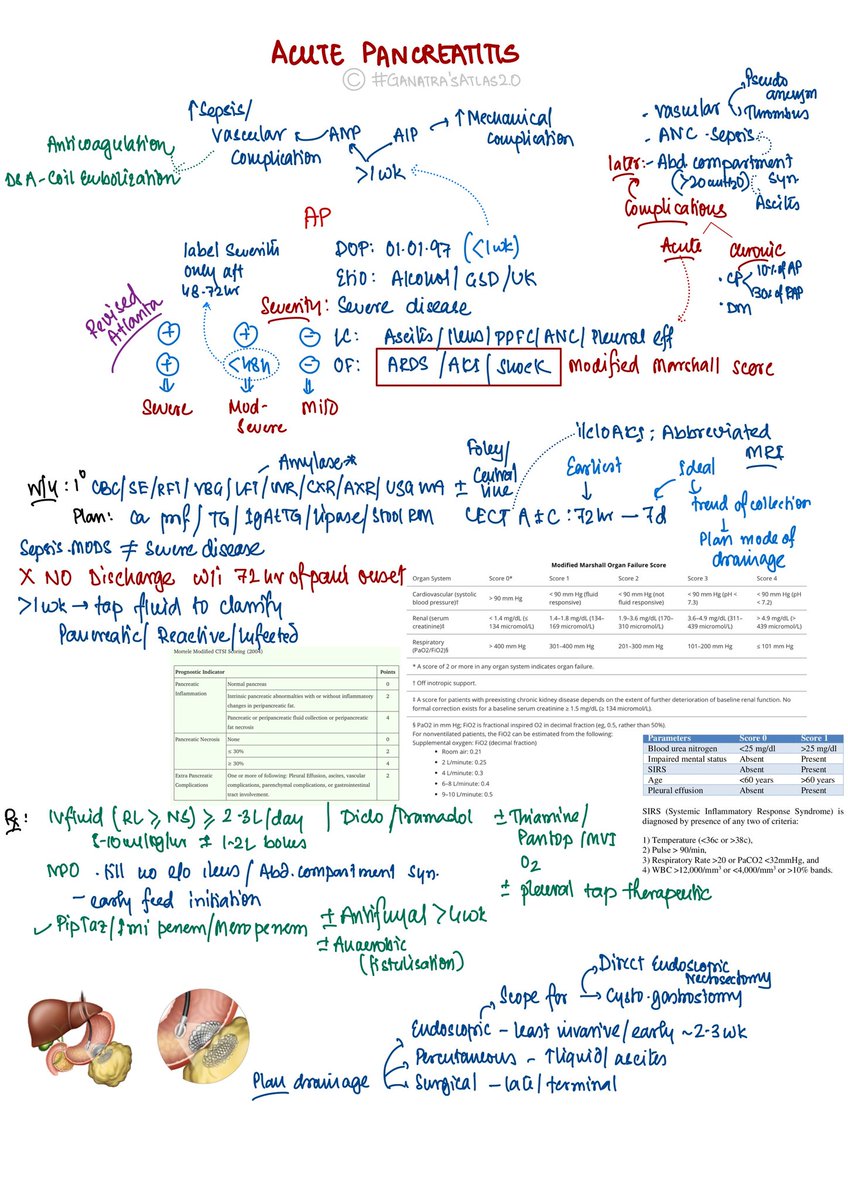 ACUTE PANCREATITIS
© #GANATRA'SATLAS2.0
↑Sepsis/
Vascular
Complication
ANP
AIP
↑Mechanical
complication
>1wk
Anticoagulation
DSA-Coil Embolization
Pseudo
aneurysm
Thrombus
• Vascular
• ANC - sepsis
later:- Abd compartment
(>20cmH2O) Syn
Ascites
Complications
Acute
Chronic
• CP 10% of AP
30% of RAP
• DM
AP
DOP: 01.01.97 (<1wk)
Etio: Alcohol/GSD/UK
Severity: Severe disease
label severity
only aft
48-72hr
Revised
Atlanta
+ + - LC: Ascites/Ileus/PPFC/ANC/Pleural eff
+ <48h - OF: ARDS/AKI/Shock Modified Marshall score
Severe
Mod-
Severe
Mild
i/c/o AKI; Abbreviated
MRI
Amylase*
W/U: 1° CBC/SE/RFT/VBG/LFT/INR/CXR/AXR/USG WA ±
Foley/
Central
line
Earliest
Ideal
Plan: Ca prof/TG/IgA tTG/Lipase/Stool RM
CECT A±C: 72hr — 7d
trend of collection
Plan mode of
drainage
Sepsis MODS ≠ Severe disease
X NO Discharge w/i 72hr of pain onset
>1wk → tap fluid to clarify
Pancreatic/Reactive/Infected
Modified Marshall Organ Failure Score
Organ System Score 0* Score 1 Score 2 Score 3 Score 4
Cardiovascular (systolic blood pressure)† > 90 mm Hg < 90 mm Hg (fluid responsive) < 90 mm Hg (not fluid responsive) < 90 mm Hg (pH < 7.3) < 90 mm Hg (pH < 7.2)
Renal (serum creatinine)‡ < 1.4 mg/dL (≤ 134 micromol/L) 1.4–1.8 mg/dL (134–169 micromol/L) 1.9–3.6 mg/dL (170–310 micromol/L) 3.6–4.9 mg/dL (311–439 micromol/L) > 4.9 mg/dL (> 439 micromol/L)
Respiratory (PaO2/FiO2)§ > 400 mm Hg 301–400 mm Hg 201–300 mm Hg 101–200 mm Hg ≤ 101 mm Hg
* A score of 2 or more in any organ system indicates organ failure.
† Off inotropic support.
‡ A score for patients with preexisting chronic kidney disease depends on the extent of further deterioration of baseline renal function. No
formal correction exists for a baseline serum creatinine ≥ 1.5 mg/dL (≥ 134 micromol/L).
§ PaO2 in mm Hg; FiO2 is fractional inspired O2 in decimal fraction (eg, 0.5, rather than 50%).
For nonventilated patients, the FiO2 can be estimated from the following:
Supplemental oxygen: FiO2 (decimal fraction)
• Room air: 0.21
• 2 L/minute: 0.25
• 4 L/minute: 0.3
• 6–8 L/minute: 0.4
• 9–10 L/minute: 0.5
Mortele Modified CTSI Scoring (2004)
Prognostic Indicator Points
Pancreatic Inflammation Normal pancreas 0
Intrinsic pancreatic abnormalities with or without inflammatory changes in peripancreatic fat. 2
Pancreatic or peripancreatic fluid collection or peripancreatic fat necrosis 4
Pancreatic Necrosis None 0
≤ 30% 2
≥ 30% 4
Extra Pancreatic Complications One or more of following: Pleural Effusion, ascites, vascular complications, parenchymal complications, or gastrointestinal tract involvement. 2
Parameters Score 0 Score 1
Blood urea nitrogen <25 mg/dl >25 mg/dl
Impaired mental status Absent Present
SIRS Absent Present
Age <60 years >60 years
Pleural effusion Absent Present
SIRS (Systemic Inflammatory Response Syndrome) is
diagnosed by presence of any two of criteria:
1) Temperature (<36c or >38c),
2) Pulse > 90/min,
3) Respiratory Rate >20 or PaCO2 <32mmHg, and
4) WBC >12,000/mm³ or <4,000/mm³ or >10% bands.
Rx: IVfluid (RL ≥ NS) ≥ 2-3L/day | Diclo/Tramadol
5-10ml/kg/hr ± 1-2L bolus
± Thiamine/
Pantop/MVI
O2
± pleural tap therapeutic
NPO • till no e/o ileus/Abd. compartment syn.
- early feed initiation
✓ PipTaz/Imipenem/Meropenem
± Antifungal >4wk
± Anaerobic
(fistulisation)
Direct Endoscopic
Necrosectomy
Scope for → Cysto-gastrostomy
Endoscopic - least invasive/early ~2-3wk
Plan drainage
Percutaneous - ↑liquid/ascites
Surgical - late/terminal